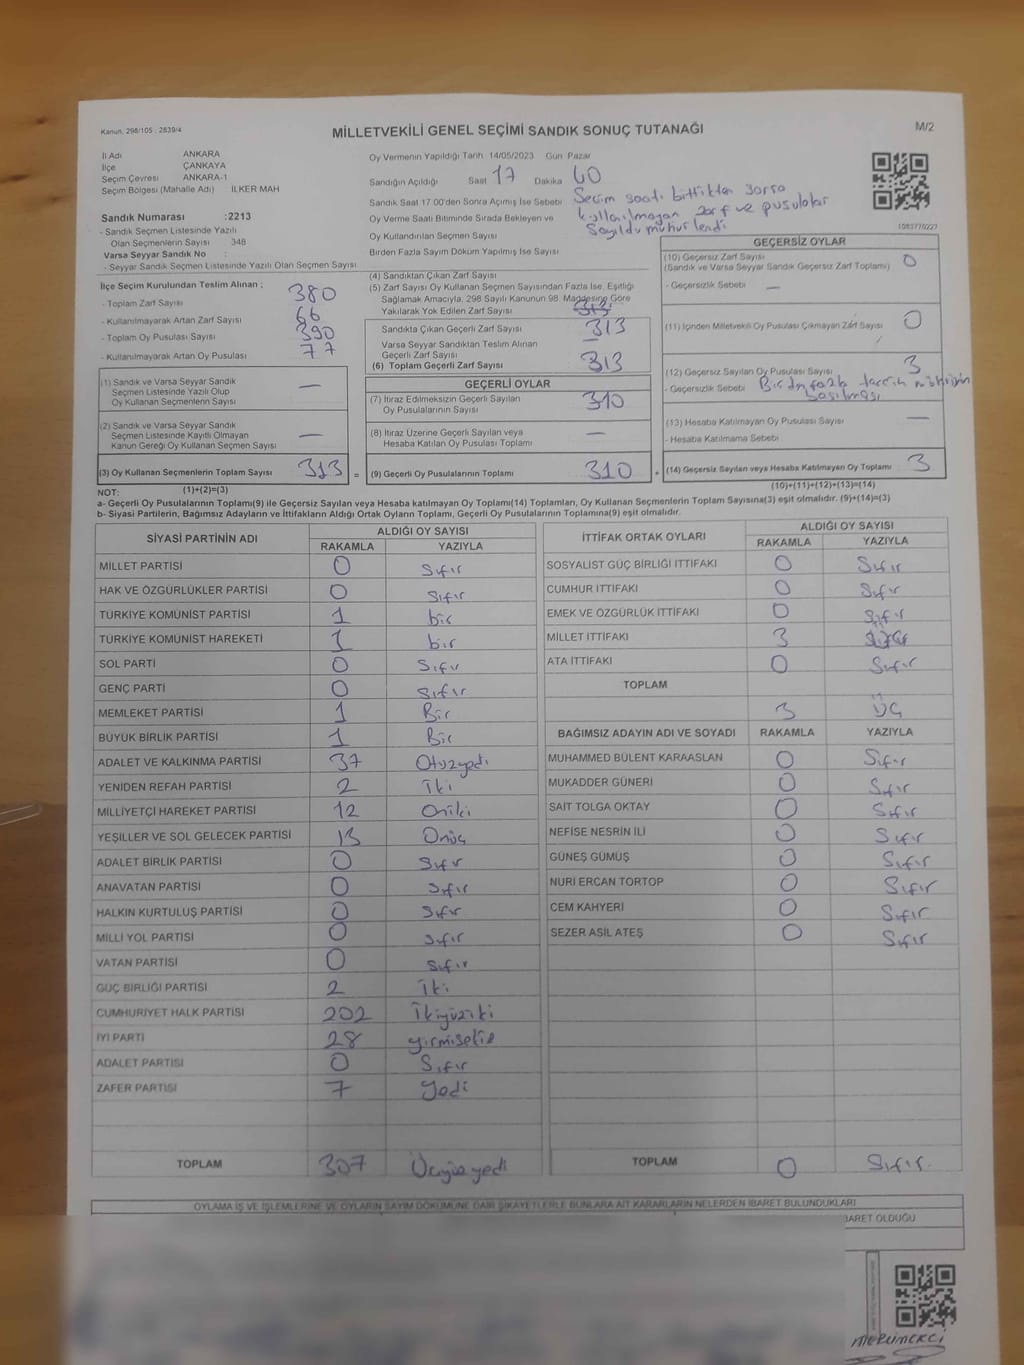 Kanun, 298/105 , 2839/4
MİLLETVEKİLİ GENEL SEÇİMİ SANDIK SONUÇ TUTANAĞI
M/2
İl Adı ANKARA
İlçe ÇANKAYA
Seçim Çevresi ANKARA-1
Seçim Bölgesi (Mahalle Adı) İLKER MAH
Oy Vermenin Yapıldığı Tarih 14/05/2023 Gün Pazar
Sandığın Açıldığı Saat 17 Dakika 40
Sandık Saat 17.00'den Sonra Açımış İse Sebebi Seçim saati bittikten sonra
Oy Verme Saati Bitiminde Sırada Bekleyen ve kullanılmayan zarf ve pusulalar
Oy Kullandırılan Seçmen Sayısı sayıldı mühürlendi
Birden Fazla Sayım Döküm Yapılmış İse Sayısı
1083770227
Sandık Numarası :2213
- Sandık Seçmen Listesinde Yazılı
Olan Seçmenlerin Sayısı 348
Varsa Seyyar Sandık No :
- Seyyar Sandık Seçmen Listesinde Yazılı Olan Seçmen Sayısı
İlçe Seçim Kurulundan Teslim Alınan ;
- Toplam Zarf Sayısı 380
- Kullanılmayarak Artan Zarf Sayısı 66
- Toplam Oy Pusulası Sayısı 390
- Kullanılmayarak Artan Oy Pusulası 77
(1) Sandık ve Varsa Seyyar Sandık
Seçmen Listesinde Yazılı Olup
Oy Kullanan Seçmenlerin Sayısı —
(2) Sandık ve Varsa Seyyar Sandık
Seçmen Listesinde Kayıtlı Olmayan
Kanun Gereği Oy Kullanan Seçmen Sayısı —
(3) Oy Kullanan Seçmenlerin Toplam Sayısı 313 =
(1)+(2)=(3)
(4) Sandıktan Çıkan Zarf Sayısı
(5) Zarf Sayısı Oy Kullanan Seçmen Sayısından Fazla İse, Eşitliği
Sağlamak Amacıyla, 298 Sayılı Kanunun 98. Maddesine Göre
Yakılarak Yok Edilen Zarf Sayısı 313
Sandıkta Çıkan Geçerli Zarf Sayısı 313
Varsa Seyyar Sandıktan Teslim Alınan
Geçerli Zarf Sayısı —
(6) Toplam Geçerli Zarf Sayısı 313
GEÇERLİ OYLAR
(7) İtiraz Edilmeksizin Geçerli Sayılan
Oy Pusulalarının Sayısı 310
(8) İtiraz Üzerine Geçerli Sayılan veya
Hesaba Katılan Oy Pusulası Toplamı —
(9) Geçerli Oy Pusulalarının Toplamı 310 +
GEÇERSİZ OYLAR
(10) Geçersiz Zarf Sayısı
(Sandık ve Varsa Seyyar Sandık Geçersiz Zarf Toplamı) 0
- Geçersizlik Sebebi —
(11) İçinden Milletvekili Oy Pusulası Çıkmayan Zarf Sayısı 0
(12) Geçersiz Sayılan Oy Pusulası Sayısı 3
- Geçersizlik Sebebi Birden fazla tercih mührünün
basılması
(13) Hesaba Katılmayan Oy Pusulası Sayısı —
- Hesaba Katılmama Sebebi
(14) Geçersiz Sayılan veya Hesaba Katılmayan Oy Toplamı 3
(10)+(11)+(12)+(13)=(14)
NOT:
a- Geçerli Oy Pusulalarının Toplamı(9) ile Geçersiz Sayılan veya Hesaba katılmayan Oy Toplamı(14) Toplamları, Oy Kullanan Seçmenlerin Toplam Sayısına(3) eşit olmalıdır. (9)+(14)=(3)
b- Siyasi Partilerin, Bağımsız Adayların ve İttifakların Aldığı Ortak Oyların Toplamı, Geçerli Oy Pusulalarının Toplamına(9) eşit olmalıdır.
SİYASİ PARTİNİN ADI ALDIĞI OY SAYISI
RAKAMLA YAZIYLA
MİLLET PARTİSİ 0 Sıfır
HAK VE ÖZGÜRLÜKLER PARTİSİ 0 Sıfır
TÜRKİYE KOMÜNİST PARTİSİ 1 bir
TÜRKİYE KOMÜNİST HAREKETİ 1 bir
SOL PARTİ 0 Sıfır
GENÇ PARTİ 0 Sıfır
MEMLEKET PARTİSİ 1 Bir
BÜYÜK BİRLİK PARTİSİ 1 Bir
ADALET VE KALKINMA PARTİSİ 37 Otuzyedi
YENİDEN REFAH PARTİSİ 2 İki
MİLLİYETÇİ HAREKET PARTİSİ 12 Oniki
YEŞİLLER VE SOL GELECEK PARTİSİ 13 Onüç
ADALET BİRLİK PARTİSİ 0 Sıfır
ANAVATAN PARTİSİ 0 Sıfır
HALKIN KURTULUŞ PARTİSİ 0 Sıfır
MİLLİ YOL PARTİSİ 0 Sıfır
VATAN PARTİSİ 0 Sıfır
GÜÇ BİRLİĞİ PARTİSİ 2 İki
CUMHURİYET HALK PARTİSİ 202 İkiyüziki
İYİ PARTİ 28 yirmisekiz
ADALET PARTİSİ 0 Sıfır
ZAFER PARTİSİ 7 Yedi
TOPLAM 307 Üçyüzyedi
İTTİFAK ORTAK OYLARI ALDIĞI OY SAYISI
RAKAMLA YAZIYLA
SOSYALİST GÜÇ BİRLİĞİ İTTİFAKI 0 Sıfır
CUMHUR İTTİFAKI 0 Sıfır
EMEK VE ÖZGÜRLÜK İTTİFAKI 0 Sıfır
MİLLET İTTİFAKI 3
ATA İTTİFAKI 0 Sıfır
TOPLAM
3 Üç
BAĞIMSIZ ADAYIN ADI VE SOYADI RAKAMLA YAZIYLA
MUHAMMED BÜLENT KARAASLAN 0 Sıfır
MUKADDER GÜNERİ 0 Sıfır
SAİT TOLGA OKTAY 0 Sıfır
NEFİSE NESRİN İLİ 0 Sıfır
GÜNEŞ GÜMÜŞ 0 Sıfır
NURİ ERCAN TORTOP 0 Sıfır
CEM KAHYERİ 0 Sıfır
SEZER ASİL ATEŞ 0 Sıfır
TOPLAM 0 Sıfır
OYLAMA İŞ VE İŞLEMLERİNE VE OYLARIN SAYIM DÖKÜMÜNE DAİR ŞİKAYETLERLE BUNLARA AİT KARARLARIN NELERDEN İBARET BULUNDUKLARI
İBARET OLDUĞU